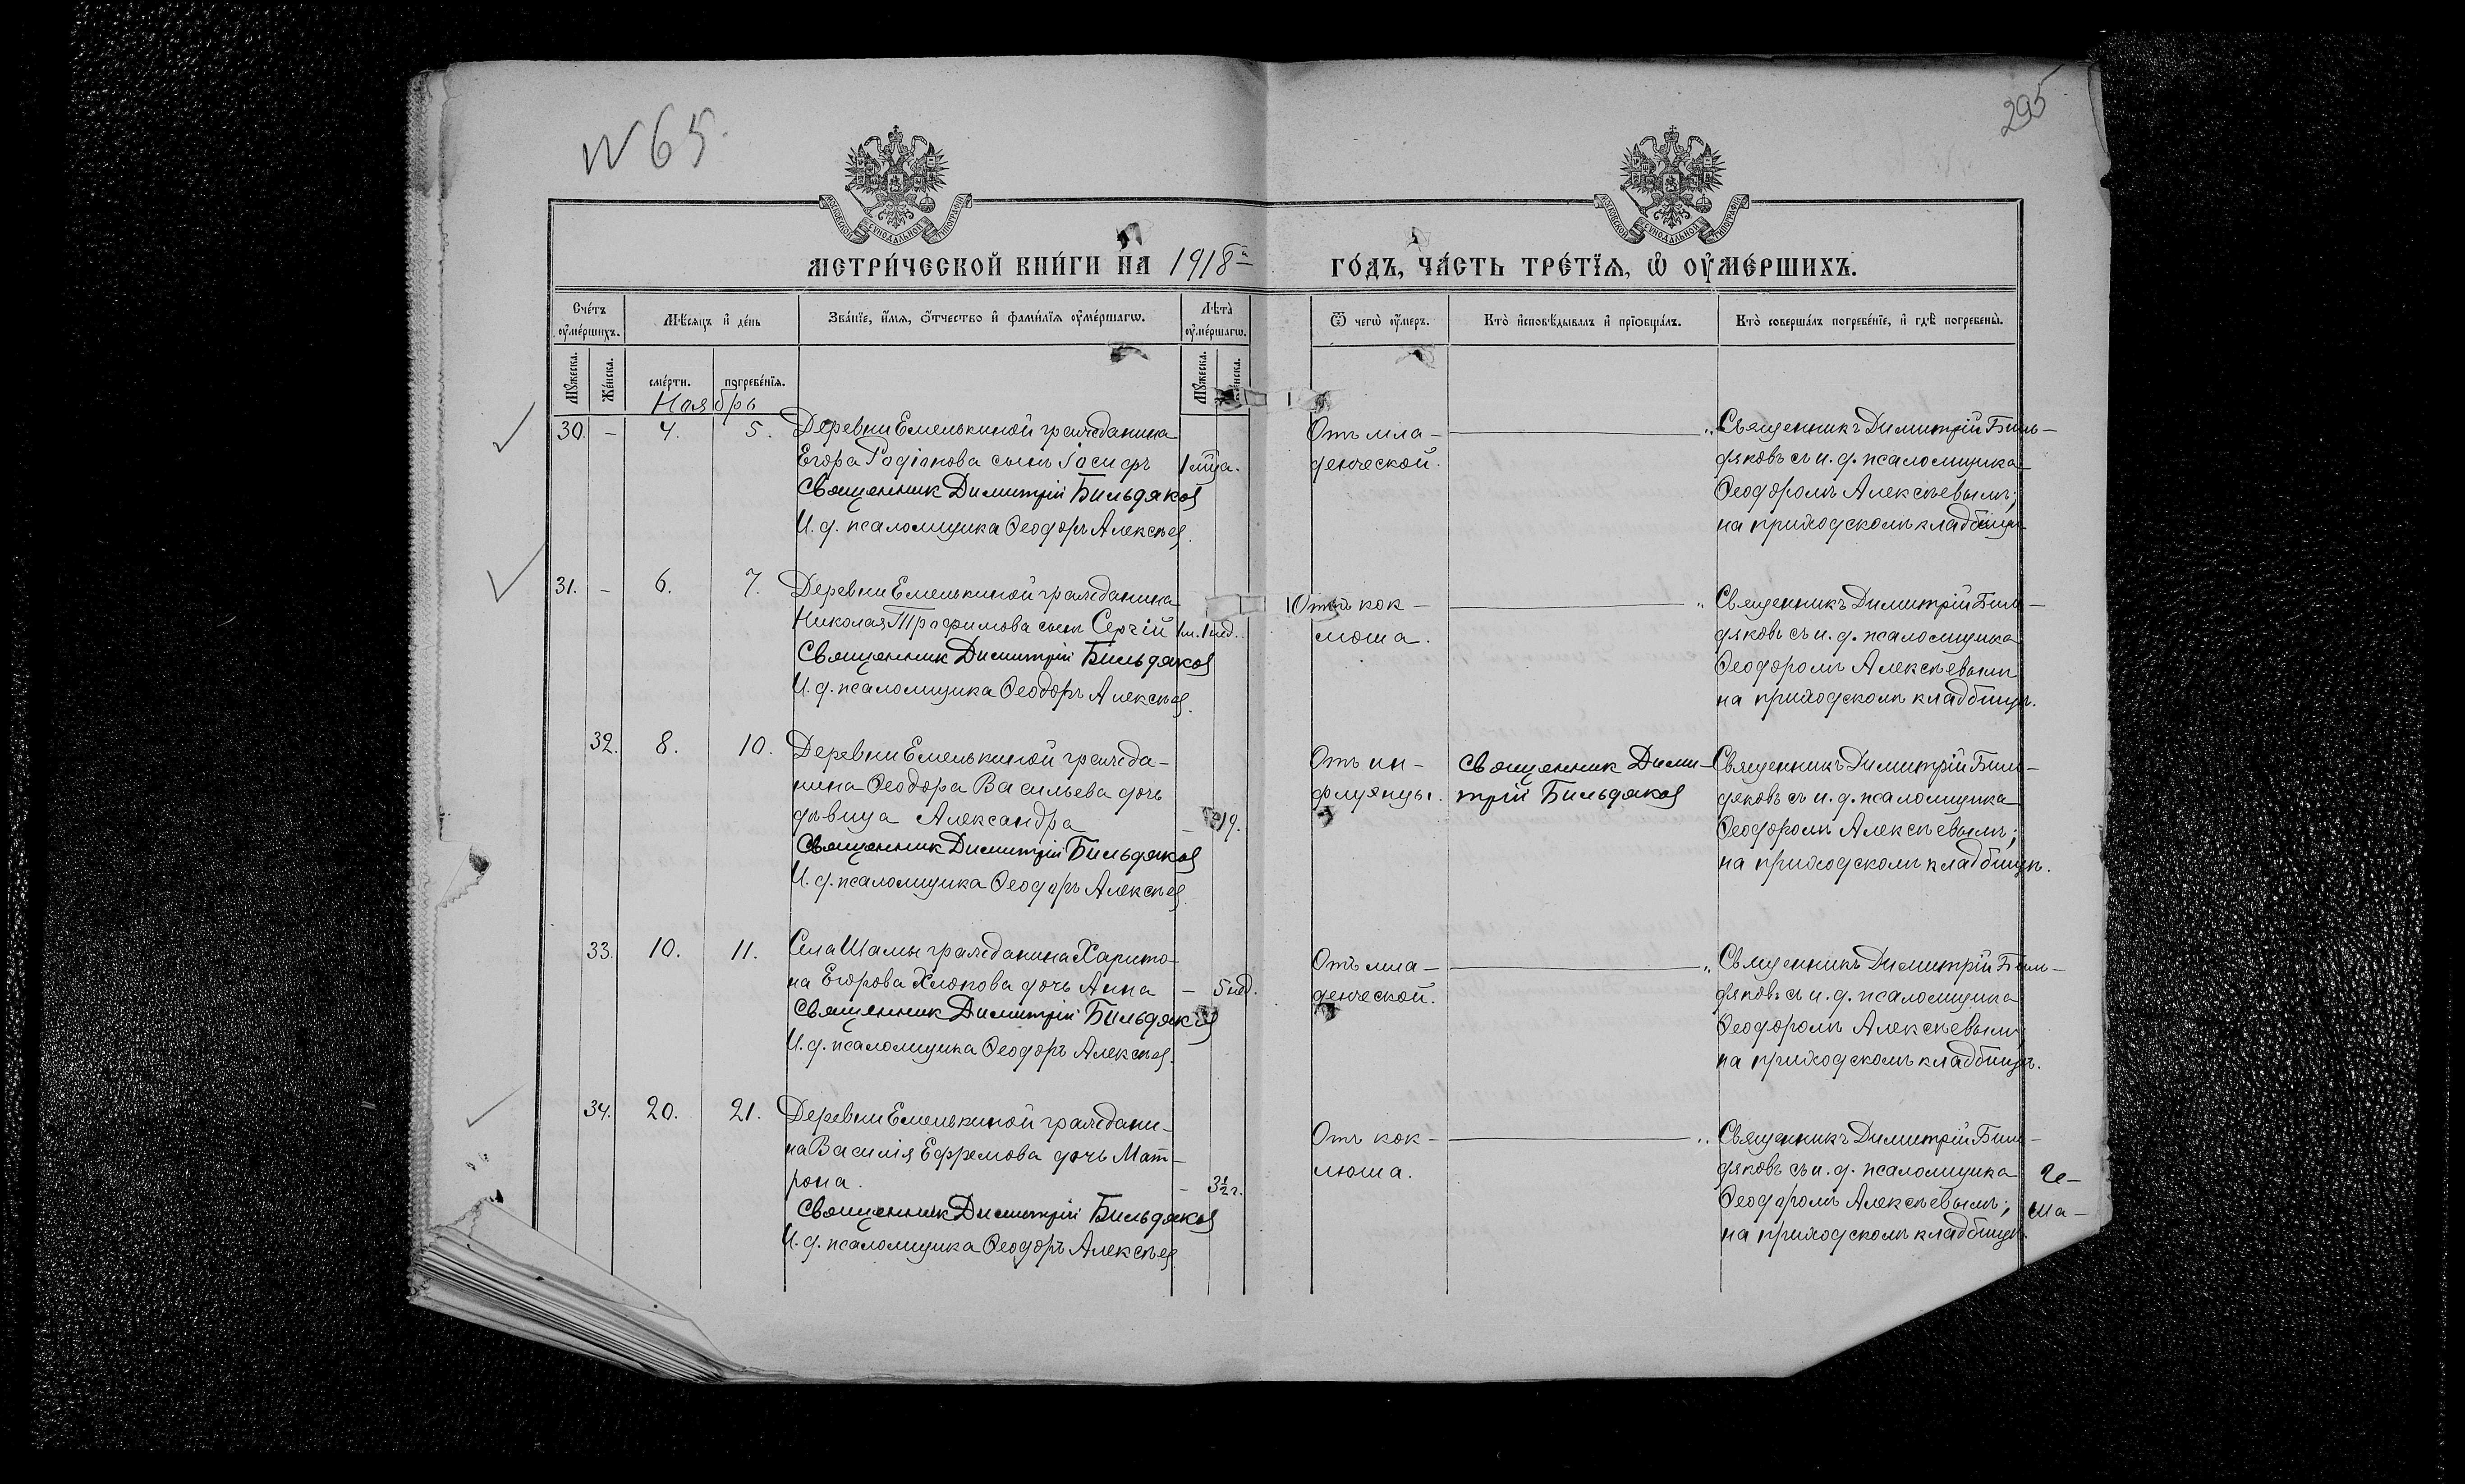 N 65.
295
МОСКОВСКОЙ СѴНОДАЛЬНОЙ ТИПОГРАФІИ
МОСКОВСКОЙ СѴНОДАЛЬНОЙ ТИПОГРАФІИ
МЕТРИ́ЧЕСКОЙ КНИ́ГИ НА 1918й ГО́ДЪ, ЧА́СТЬ ТРЕ́ТЇѦ, Ѽ ОУ҆МЕ́РШИХЪ.
Сче́тъ оу҆ме́ршихъ.
Мѣ́сяцъ и҆ де́нь
Зва́нїе, и҆́мя, ѻ҆́тчество и҆ фами́лїя оу҆ме́ршагѡ.
Лѣ̀та оу҆ме́ршагѡ.
Ѿ чегѡ̀ оу҆́меръ.
Кто̀ и҆сповѣ́дывалъ и҆ прїѻбща́лъ.
Кто̀ соверша́лъ погребе́нїе, и҆ гдѣ̀ погребены̀.
Мꙋ́жеска.
Же́нска.
сме́рти.
погребе́нїя.
Мꙋ́жеска.
Же́нска.
Ноябрь
30. – 4. 5. Деревни Емелькиной гражданина
Егора Родіонова сынъ Іосифъ 1 мца.
Священник Димитрій Бильдяков
И. д. псаломщика Ѳеодоръ Алексѣев.
Отъ мла-
денческой.
Священникъ Димитрій Биль-
дяковъ съ и. д. псаломщика
Ѳеодоромъ Алексѣевымъ;
на приходскомъ кладбищѣ
31. – 6. 7. Деревни Емелькиной гражданина
Николая Трофимова сынъ Сергій 1м. 1нед.
Священник Димитрій Бильдяков
И. д. псаломщика Ѳеодоръ Алексѣев.
Отъ кок-
люша.
Священникъ Димитрій Биль-
дяковъ съ и. д. псаломщика
Ѳеодоромъ Алексѣевымъ
на приходскомъ кладбищѣ.
32. 8. 10. Деревни Емелькиной гражда-
нина Ѳеодора Васильева дочь
дѣвица Александра – 19.
Священник Димитрій Бильдяков
И. д. псаломщика Ѳеодоръ Алексѣев
Отъ ин-
флуэнцы.
Священник Дими-
трій Бильдяков
Священникъ Димитрій Биль-
дяковъ съ и. д. псаломщика
Ѳеодоромъ Алексѣевымъ;
на приходскомъ кладбищѣ.
33. 10. 11. Села Шамы гражданина Харито-
на Егорова Хлюпова дочь Анна – 5 нед.
Священник Димитрій Бильдяков
И. д. псаломщика Ѳеодоръ Алексѣев.
Отъ мла-
денческой.
Священникъ Димитрій Биль-
дяковъ съ и. д. псаломщика
Ѳеодоромъ Алексѣевымъ;
на приходскомъ кладбищѣ.
34. 20. 21. Деревни Емелькиной граждани-
на Василія Ефремова дочь Мат-
рона. – 3½ г.
Священник Димитрій Бильдяков
И. д. псаломщика Ѳеодоръ Алексѣев
Отъ кок-
люша.
Священникъ Димитрій Биль-
дяковъ съ и. д. псаломщика
Ѳеодоромъ Алексѣевымъ;
на приходскомъ кладбищѣ.
Че-
ша-